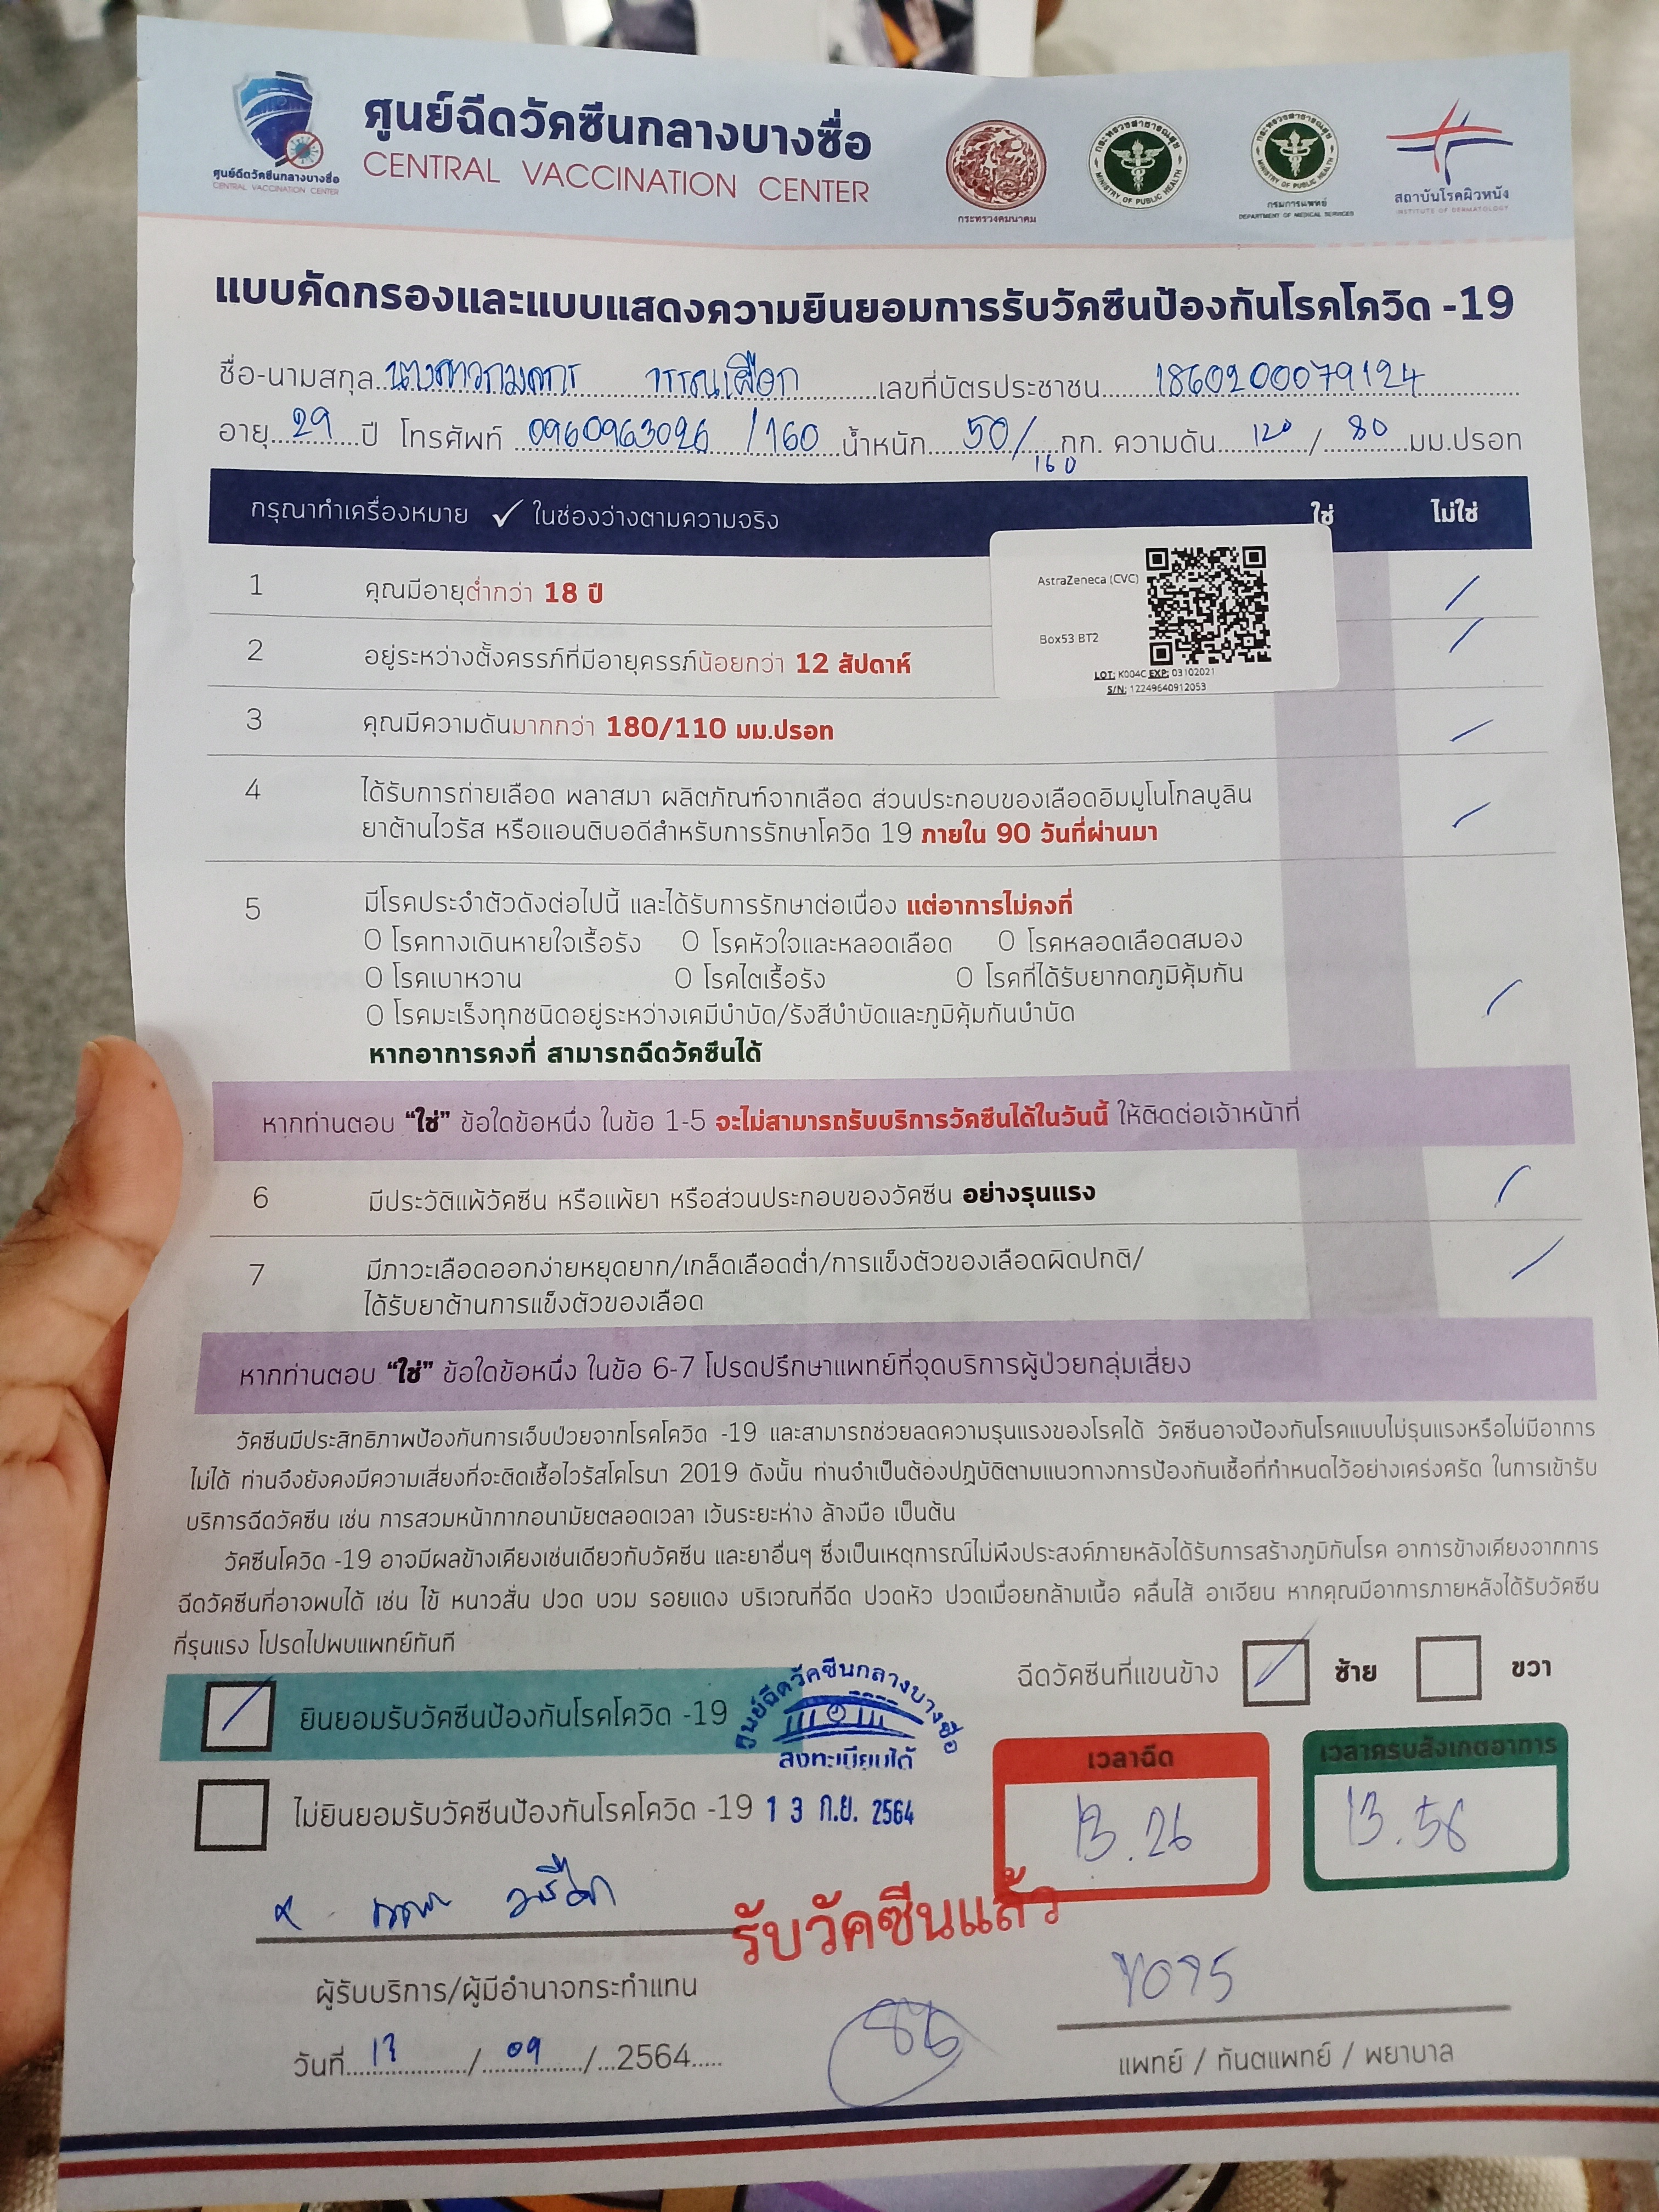 ศูนย์ฉีดวัคซีนกลางบางซื่อ
CENTRAL VACCINATION CENTER
ศูนย์ฉีดวัคซีนกลางบางซื่อ
CENTRAL VACCINATION CENTER
กระทรวงคมนาคม
กระทรวงสาธารณสุข
MINISTRY OF PUBLIC HEALTH
กระทรวงสาธารณสุข
MINISTRY OF PUBLIC HEALTH
กรมการแพทย์
DEPARTMENT OF MEDICAL SERVICES
สถาบันโรคผิวหนัง
INSTITUTE OF DERMATOLOGY
แบบคัดกรองและแบบแสดงความยินยอมการรับวัคซีนป้องกันโรคโควิด -19
ชื่อ-นามสกุล นางสาวกมลกร วรรณเผือก เลขที่บัตรประชาชน 1860200079124
อายุ 29 ปี โทรศัพท์ 0960963026 /160 น้ำหนัก 50/160 กก. ความดัน 120 / 80 มม.ปรอท
กรุณาทำเครื่องหมาย ✓ ในช่องว่างตามความจริง ใช่ ไม่ใช่
AstraZeneca (CVC)
Box53 BT2
LOT: K004C EXP: 03102021
S/N: 12249640912053
1 คุณมีอายุต่ำกว่า 18 ปี
2 อยู่ระหว่างตั้งครรภ์ที่มีอายุครรภ์น้อยกว่า 12 สัปดาห์
3 คุณมีความดันมากกว่า 180/110 มม.ปรอท
4 ได้รับการถ่ายเลือด พลาสมา ผลิตภัณฑ์จากเลือด ส่วนประกอบของเลือดอิมมูโนโกลบูลิน
ยาต้านไวรัส หรือแอนติบอดีสำหรับการรักษาโควิด 19 ภายใน 90 วันที่ผ่านมา
5 มีโรคประจำตัวดังต่อไปนี้ และได้รับการรักษาต่อเนื่อง แต่อาการไม่คงที่
O โรคทางเดินหายใจเรื้อรัง O โรคหัวใจและหลอดเลือด O โรคหลอดเลือดสมอง
O โรคเบาหวาน O โรคไตเรื้อรัง O โรคที่ได้รับยากดภูมิคุ้มกัน
O โรคมะเร็งทุกชนิดอยู่ระหว่างเคมีบำบัด/รังสีบำบัดและภูมิคุ้มกันบำบัด
หากอาการคงที่ สามารถฉีดวัคซีนได้
หากท่านตอบ “ใช่” ข้อใดข้อหนึ่ง ในข้อ 1-5 จะไม่สามารถรับบริการวัคซีนได้ในวันนี้ ให้ติดต่อเจ้าหน้าที่
6 มีประวัติแพ้วัคซีน หรือแพ้ยา หรือส่วนประกอบของวัคซีน อย่างรุนแรง
7 มีภาวะเลือดออกง่ายหยุดยาก/เกล็ดเลือดต่ำ/การแข็งตัวของเลือดผิดปกติ/
ได้รับยาต้านการแข็งตัวของเลือด
หากท่านตอบ “ใช่” ข้อใดข้อหนึ่ง ในข้อ 6-7 โปรดปรึกษาแพทย์ที่จุดบริการผู้ป่วยกลุ่มเสี่ยง
วัคซีนมีประสิทธิภาพป้องกันการเจ็บป่วยจากโรคโควิด -19 และสามารถช่วยลดความรุนแรงของโรคได้ วัคซีนอาจป้องกันโรคแบบไม่รุนแรงหรือไม่มีอาการ
ไม่ได้ ท่านจึงยังคงมีความเสี่ยงที่จะติดเชื้อไวรัสโคโรนา 2019 ดังนั้น ท่านจำเป็นต้องปฏบัติตามแนวทางการป้องกันเชื้อที่กำหนดไว้อย่างเคร่งครัด ในการเข้ารับ
บริการฉีดวัคซีน เช่น การสวมหน้ากากอนามัยตลอดเวลา เว้นระยะห่าง ล้างมือ เป็นต้น
วัคซีนโควิด -19 อาจมีผลข้างเคียงเช่นเดียวกับวัคซีน และยาอื่นๆ ซึ่งเป็นเหตุการณ์ไม่พึงประสงค์ภายหลังได้รับการสร้างภูมิกันโรค อาการข้างเคียงจากการ
ฉีดวัคซีนที่อาจพบได้ เช่น ไข้ หนาวสั่น ปวด บวม รอยแดง บริเวณที่ฉีด ปวดหัว ปวดเมื่อยกล้ามเนื้อ คลื่นไส้ อาเจียน หากคุณมีอาการภายหลังได้รับวัคซีน
ที่รุนแรง โปรดไปพบแพทย์ทันที
ฉีดวัคซีนที่แขนข้าง ซ้าย ขวา
ยินยอมรับวัคซีนป้องกันโรคโควิด -19
ศูนย์ฉีดวัคซีนกลางบางซื่อ
ลงทะเบียนได้
เวลาฉีด เวลาครบสังเกตอาการ
ไม่ยินยอมรับวัคซีนป้องกันโรคโควิด -19 13 ก.ย. 2564
13.26 13.56
รับวัคซีนแล้ว
ผู้รับบริการ/ผู้มีอำนาจกระทำแทน
วันที่ 13 / 09 / 2564
แพทย์ / ทันตแพทย์ / พยาบาล